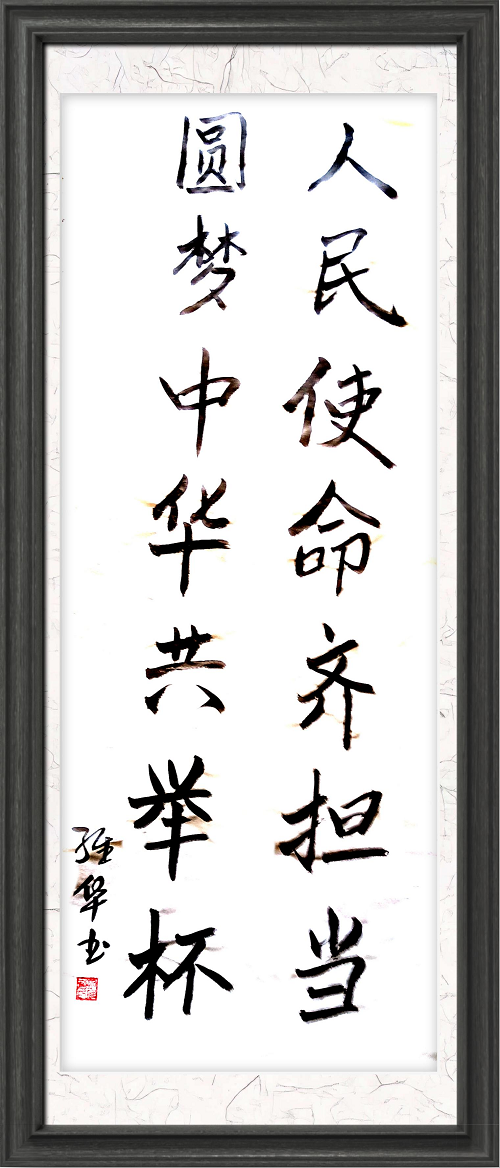 人民使命齐担当
圆梦中华共举杯
华书